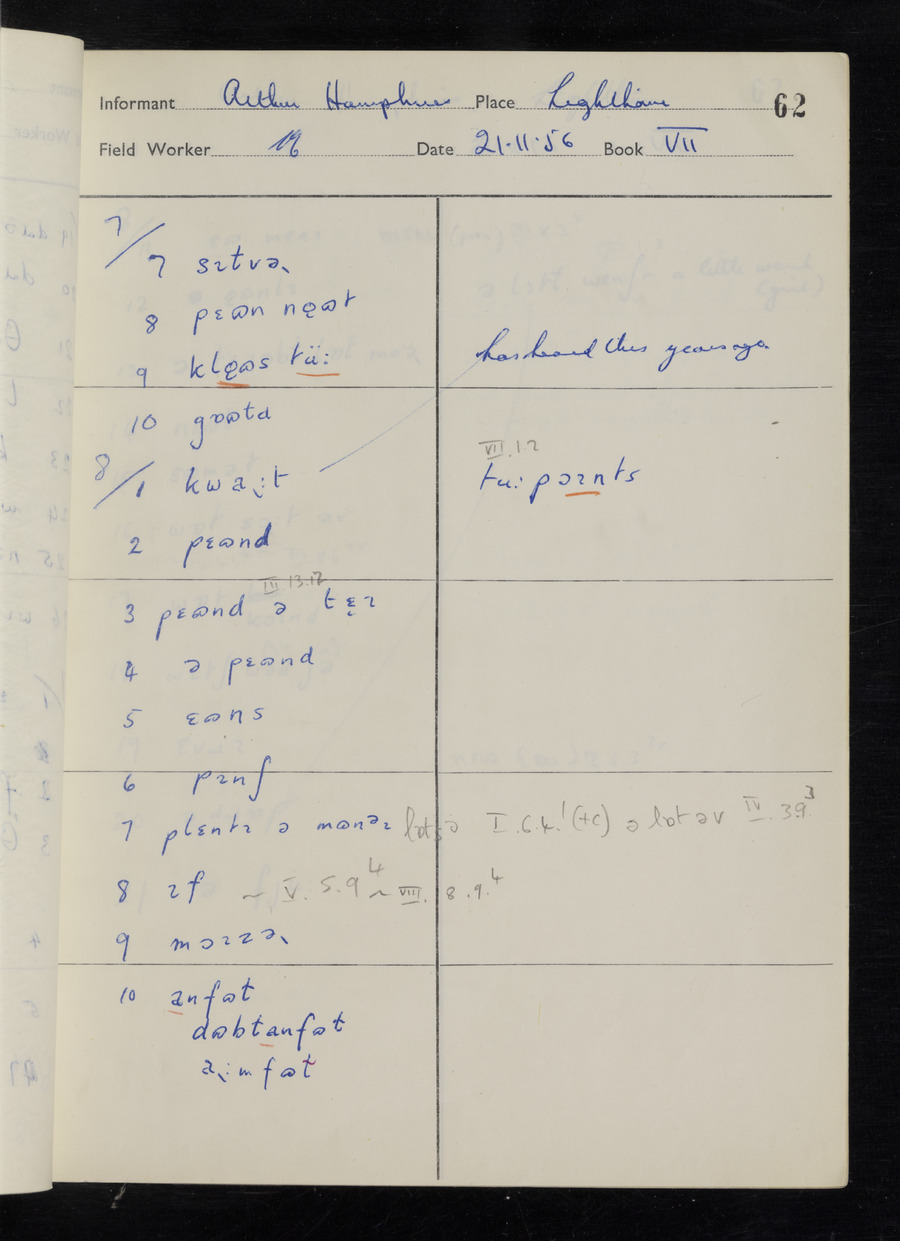 Informant Arthur Humphries Place Lighthorne 62
Field Worker Date 21·11·56 Book VII
7/7 sɪtvəˎ
8 pɛɷn nϱɷt
9 klϱɷs tüː has heard this years ago.
10 gɒɷtɑ
8/1 kwaˎːt
VII.1.2
tuː pɔɪnts
2 pɛɷnd
III 13.12
3 pɛɷnd ə tɛ̣ɪ
4 ə pɛɷnd
5 ɛɷns
6 pɪnʃ
7 plɛntɪ ə mɷnəɪ lɒts ə I.6.4.¹(+c) ə lɒt əv IV.3.9.³
8 ɪf ~ V.5.9⁴ ~ VIII.8.9.⁴
9 mɔɪzəˎ
10 anfɷt
dɷbtanfɷt
aˎːmfɷt